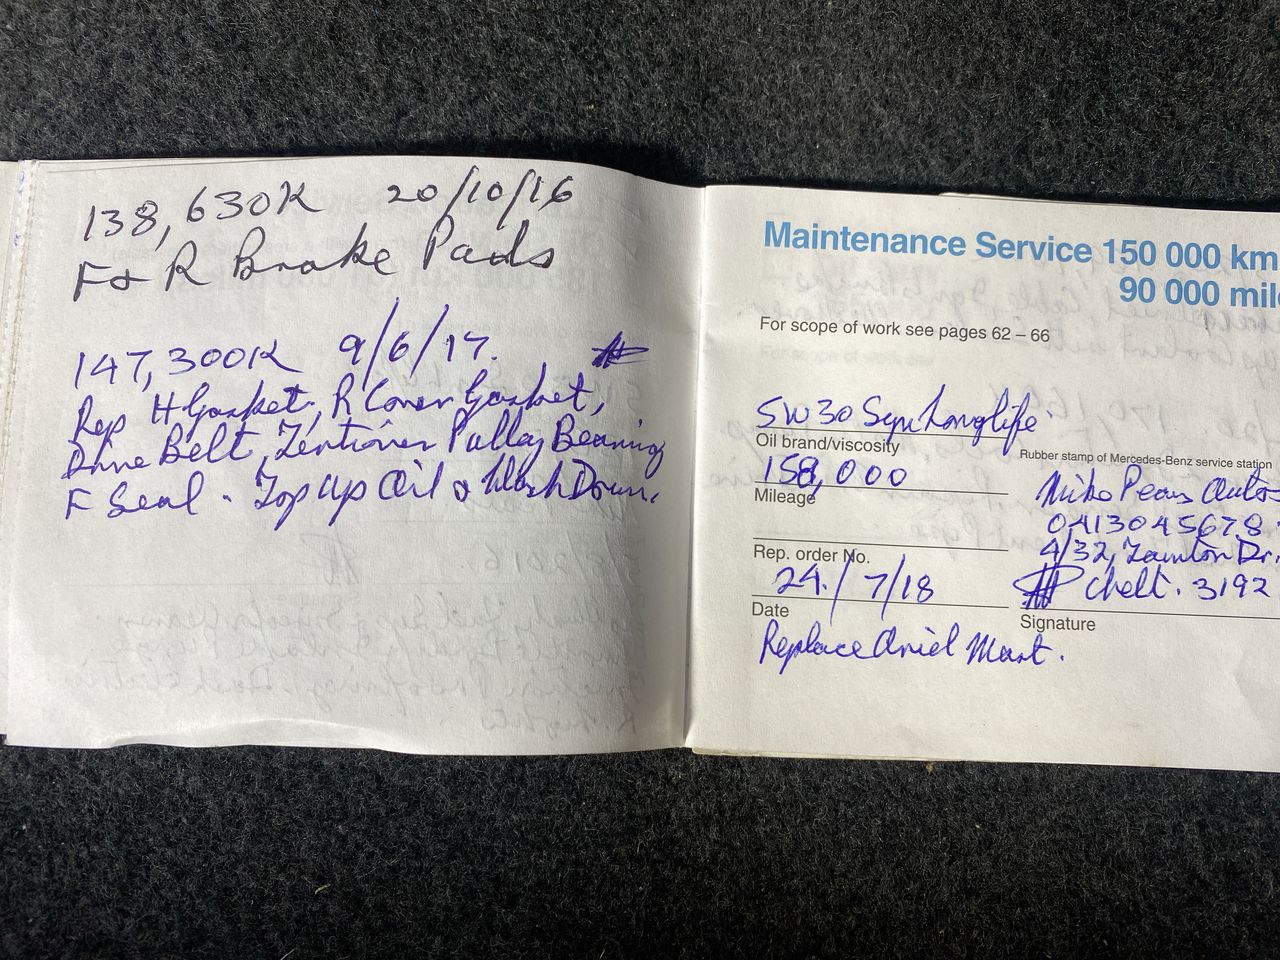 138,630K 20/10/16
F & R Brake Pads
147,300K 9/6/17.
Rep H Gasket, R Cover Gasket,
Drive Belt, Tentioner Pulley Bearing
F Seal. Top Up Oil & Wash Down.
Maintenance Service 150 000 km
90 000 mile
For scope of work see pages 62 – 66
5W30 Syn Longlife
Oil brand/viscosity
Rubber stamp of Mercedes-Benz service station
158,000
Mileage
Autos
0413045678
4/32, Dr.
Rep. order No.
24/7/18
Chelt. 3192
Date
Signature
Replace Ariel Mast.